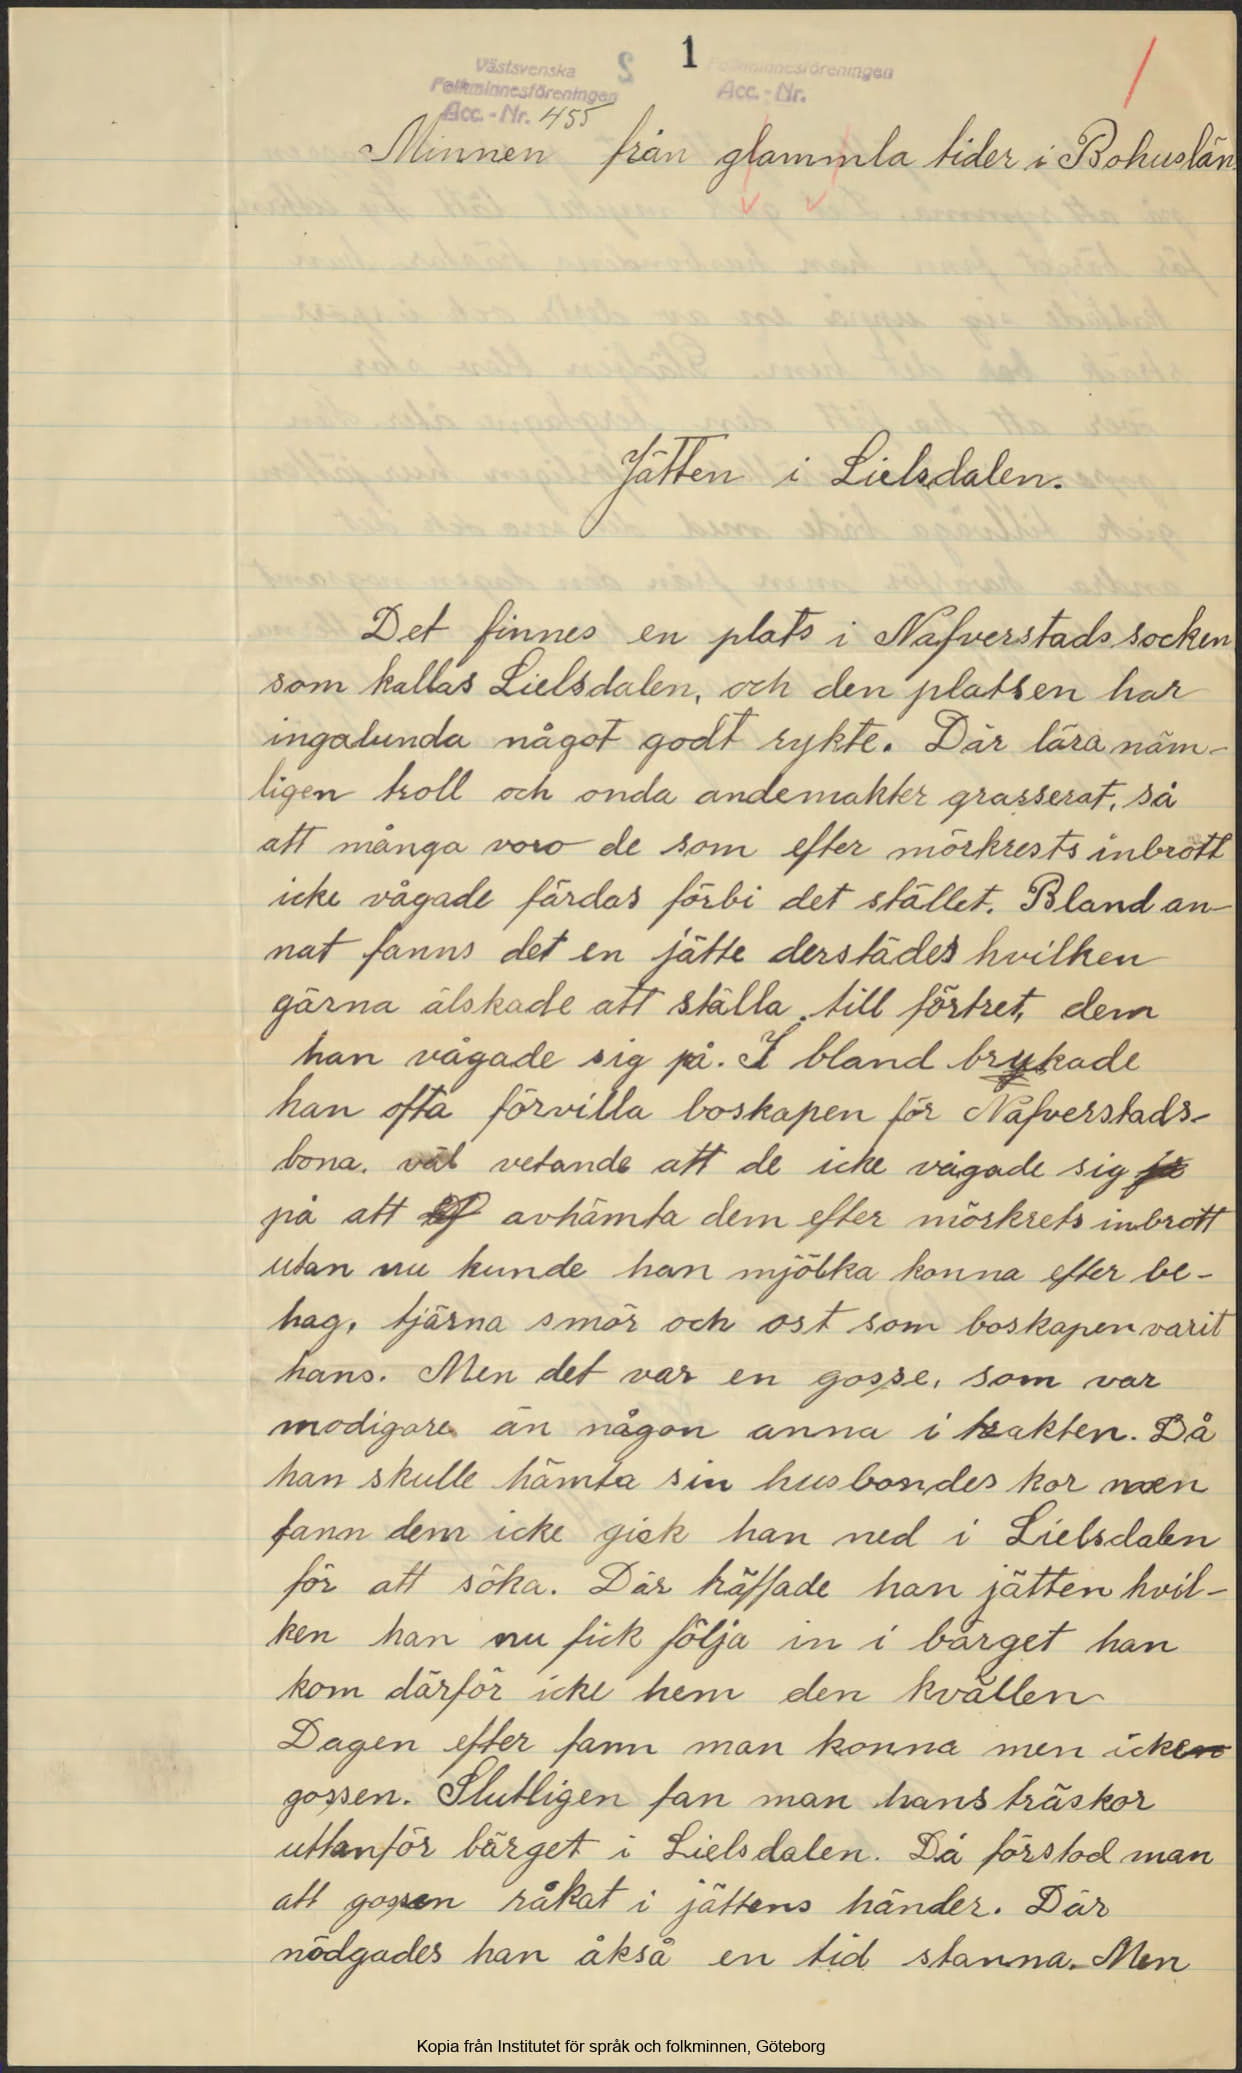 1
Västsvenska
Folkminnesföreningen
Acc.-Nr. 455
Folkminnesföreningen
Acc.-Nr.
Minnen från glammla tider i Bohuslän.
Jätten i Lielsdalen.
Det finnes en plats i Nafverstads socken
som kallas Lielsdalen, och den platsen har
ingalunda något godt rykte. Där lära näm-
ligen troll och onda andemakter grasserat, så
att många voro de som efter mörkrests inbrott
icke vågade färdas förbi det stället. Bland an-
nat fanns det en jätte derstädes hvilken
gärna älskade att ställa till förtret, dem
han vågade sig på. I bland brukade
han ofta förvilla boskapen för Nafverstads-
bona. väl vetande att de icke vågade sig
på att avhämta dem efter mörkrets inbrott
utan nu kunde han mjölka konna efter be-
hag, tjärna smör och ost som boskapen varit
hans. Men det var en gosse, som var
modigare än någon anna i trakten. Då
han skulle hämta sin husbondes kor men
fann dem icke gick han ned i Lielsdalen
för att söka. Där träffade han jätten hvil-
ken han nu fick följa in i bärget han
kom därför icke hem den kvällen
Dagen efter fann man konna men icke
gossen. Slutligen fan man hans träskor
uttanför bärget i Lielsdalen. Då förstod man
att gossen råkat i jättens händer. Där
nödgades han åkså en tid stanna. Men
Kopia från Institutet för språk och folkminnen, Göteborg